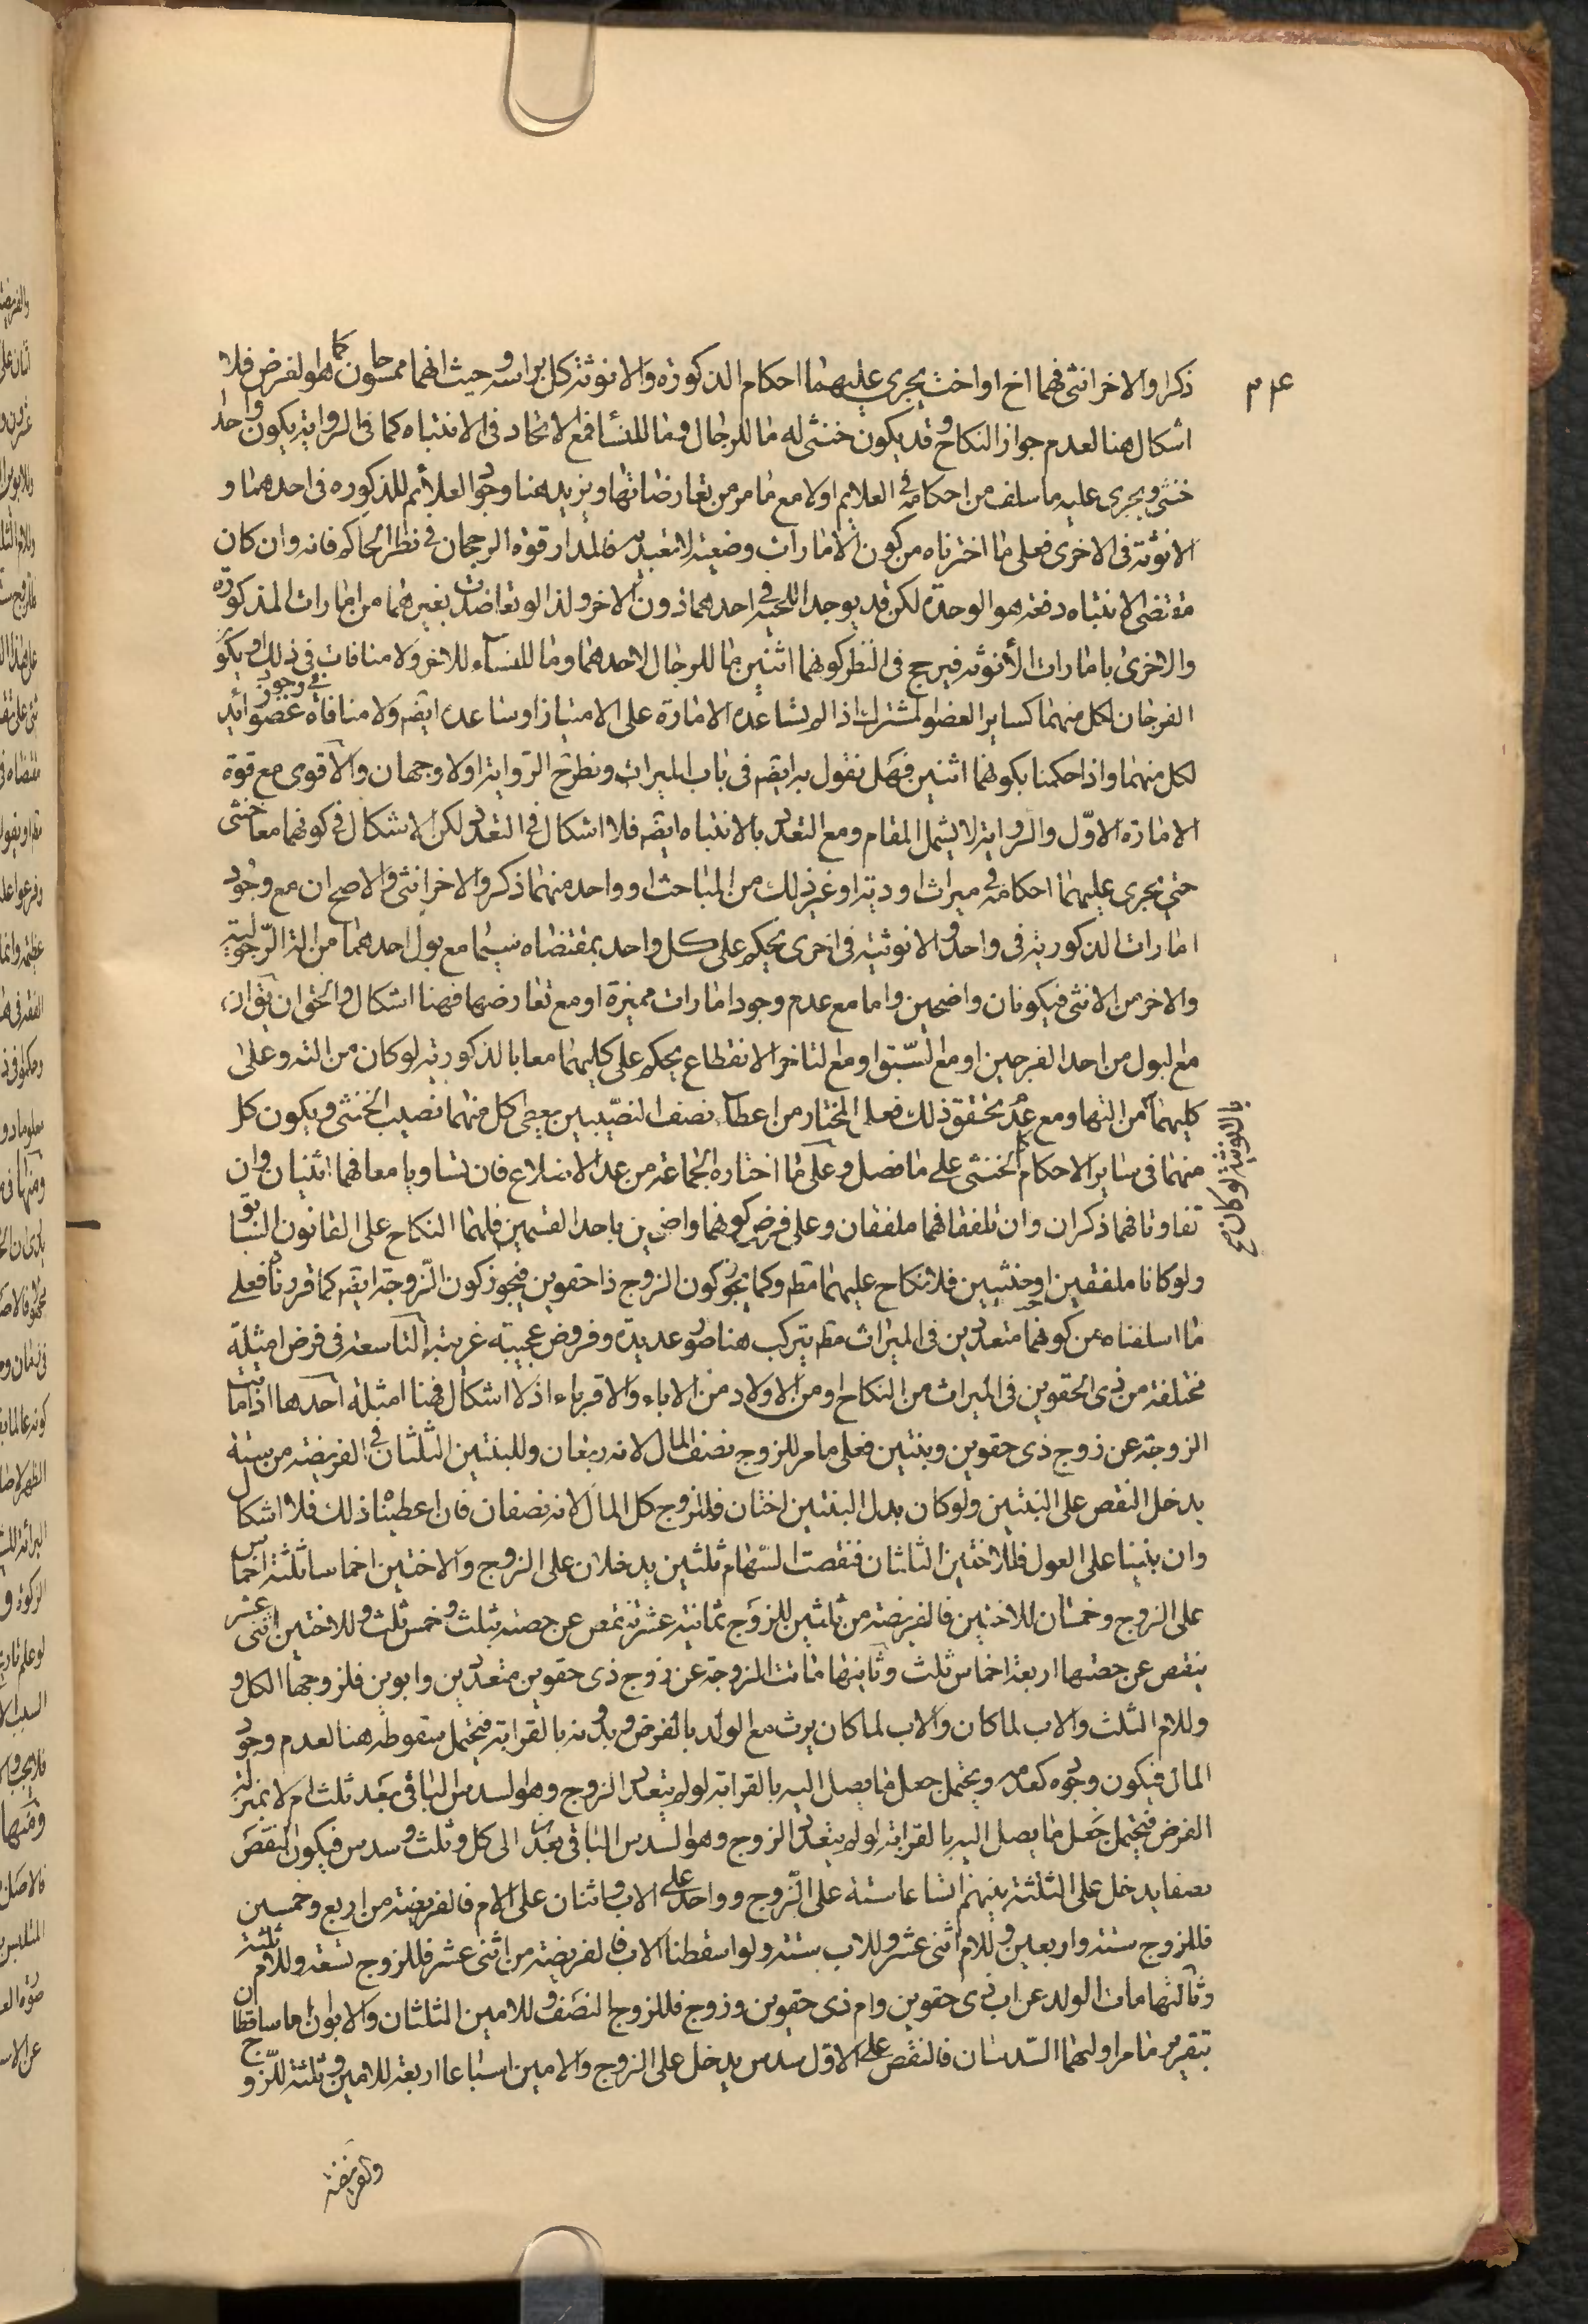 ۳۴۰
ذكرا والاخر انثى فهما اخ او اخت يجرى عليهما احكام الذكورة والانوثة كل براسه وحيث انهما ممسحون كما هو لفرض فلا
اشكال هنا لعدم جواز النكاح وقد يكون خنثى له ما للرجال وما للنسا فمع الاتحاد فى الانتباه كما فى الرواية يكون واحد
خنثى ويجرى عليه ما سلف من احكامه فى العلايم اولا مع ما مر من تعارضاتها ويزيد هنا وجود العلائم للذكوره فى احدهما و
الانوثة فى الاخرى فعلى ما اخترناه من كون الامارات وضعية لا تعبدية فالمدار قوة الرجحان فى نظر الحاكم فانه وان كان
مقتضى الانتباه دفعة هو الوحدة لكن قد يوجد اللحية فى احدهما دون الاخر ولذا لو تعاضدت بغيرهما من امارات المذكورة
والاخرى بامارات الأنوثه فيرجح فى النظر كونهما اثنين ما للرجال لاحدهما وما للنساء للاخر ولا منافات فى ذلك او يكو
الفرجان لكل منهما كساير العضو المشترك اذا لم يساعده الامارة على الامتياز او ساعده ايضه ولا منافاة فى وجود عضو زايد
لكل منهما واذا حكمنا بكونهما اثنين فهل نقول به ايضه فى باب الميراث ونطرح الرواية اولا وجهان والاقوى مع قوة
الامارة الاوّل والرواية لا يشمل المقام ومع التعدد بالانتباه ايضه فلا اشكال فى التعدد لكن الاشكال فى كونهما معا خنثى
حتى يجرى عليهما احكامه فى ميراث او دية او غير ذلك من المباحث او واحد منهما ذكر والاخر انثى والاصح ان مع وجود
امارات الذكورية فى واحد والانوثية فى اخرى يحكم على كل واحد بمقتضاه سيما مع بول احدهما من الة الرّجولية
والاخر من الانثى فيكونان واضحين واما مع عدم وجود امارات مميزة او مع تعارضها فهنا اشكال والحق ان يق ان
مع لبول من احد الفرجين او مع السّبق او مع لتاخر الانقطاع يحكم على كليهما معا بالذكورية لو كان من الته وعلى
كليهما من التها ومع عدم تحقق ذلك فعلى المختار من اعطاء نصف النصيبين يعطى كل منهما نصيب الخنثى ويكون كل
بالانوثية لو كان صح
منهما فى ساير الاحكام كالخنثى على ما فصل وعلى ما اختاره الجماعة من عد الاضلاع فان تساويا معا فهما انثيان وان
تفاوتا فهما ذكران وان تلفقا فهما ملفقان وعلى فرض كونهما واضحين باحد القسمين فلهما النكاح على القانون السابق
ولو كانا ملفقين او خنثيين فلا نكاح عليهما مط وكما يجوز كون الزوج ذا حقوين فيجوز كون الزوجة ايضه كما قررنا فعلى
ما اسلفناه من كونهما متعددين فى الميراث مط يتركب هنا صور عديدة وفروض عجيبة غريبة التاسعة فى فرض امثلة
مختلفة من ذى الحقوين فى الميراث من النكاح او من الاولاد من الاباء والاقرباء اذ لا اشكال فهنا امثلة احدها اذا ماتت
الزوجة عن زوج ذى حقوين وبنتين فعلى ما مر للزوج نصف المال لانه ربعان وللبنتين الثلثان فى الفريضة من ستة
يدخل النقص على البنتين ولو كان بدل البنتين اختان فللزوج كل المال لانه نصفان فان اعطيناه ذلك فلا اشكال
وان بنينا على العول فللاختين الثلثان فنقصت السّهام ثلثين يدخلان على الزوج والاختين اخماسا ثلثة اخماس
على الزوج وخمسان للاختين فالفريضة من ثلثين للزوج ثمانية عشر تنقص عن حصته بثلث وخمس ثلث وللاختين اثنى عشر
ينقص عن حصتها اربعة اخماس ثلث وثانيها ماتت الزوجة عن زوج ذى حقوين متعددين وابوين فلزوجها الكل و
وللام الثلث والاب لما كان والاب لما كان يرث مع الولد بالفرض وبدونه بالقرابة فيحتمل سقوطه هنا لعدم وجود
المال فيكون وجوده كعدمه ويحتمل جعل ما يصل اليه بالقرابة لو لم يتعدد الزوج وهو السدس الباقى بعد ثلث ام لا بمنزلة
الفرض فيحتمل جعل ما يصل اليه بالقرابة لو لم يتعدد الزوج وهو السدس الباقى بعد الى كل وثلث وسدس فيكون النقص
نصفا يدخل على الثلثة بينهم اتساعا ستة على الزوج وواحد على الاب واثنان على الام فالفريضة من اربع وخمسين
فللزوج ستة واربعين وللام اثنى عشر وللاب ستة ولو اسقطنا الاب فالفريضة من اثنى عشر فللزوج تسعة وللام ثلثة
وثالثها مات الولد عن اب ذى حقوين وام ذى حقوين وزوج فللزوج النصف وللامين الثلثان والابوان اما ساقطان
بتقرير ما مر او لهما السّدسان فالنقص على الاوّل سدس يدخل على الزوج والامين اسباعا اربعة للامين وثلثة للزوج
والفريضة